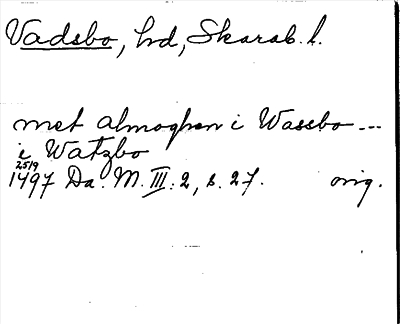 Vadsbo, hd, Skarab. l.
met almoghen i Wassbo ---
i Watzbo
25/9
1497 Da. M. III: 2, s. 27. orig.